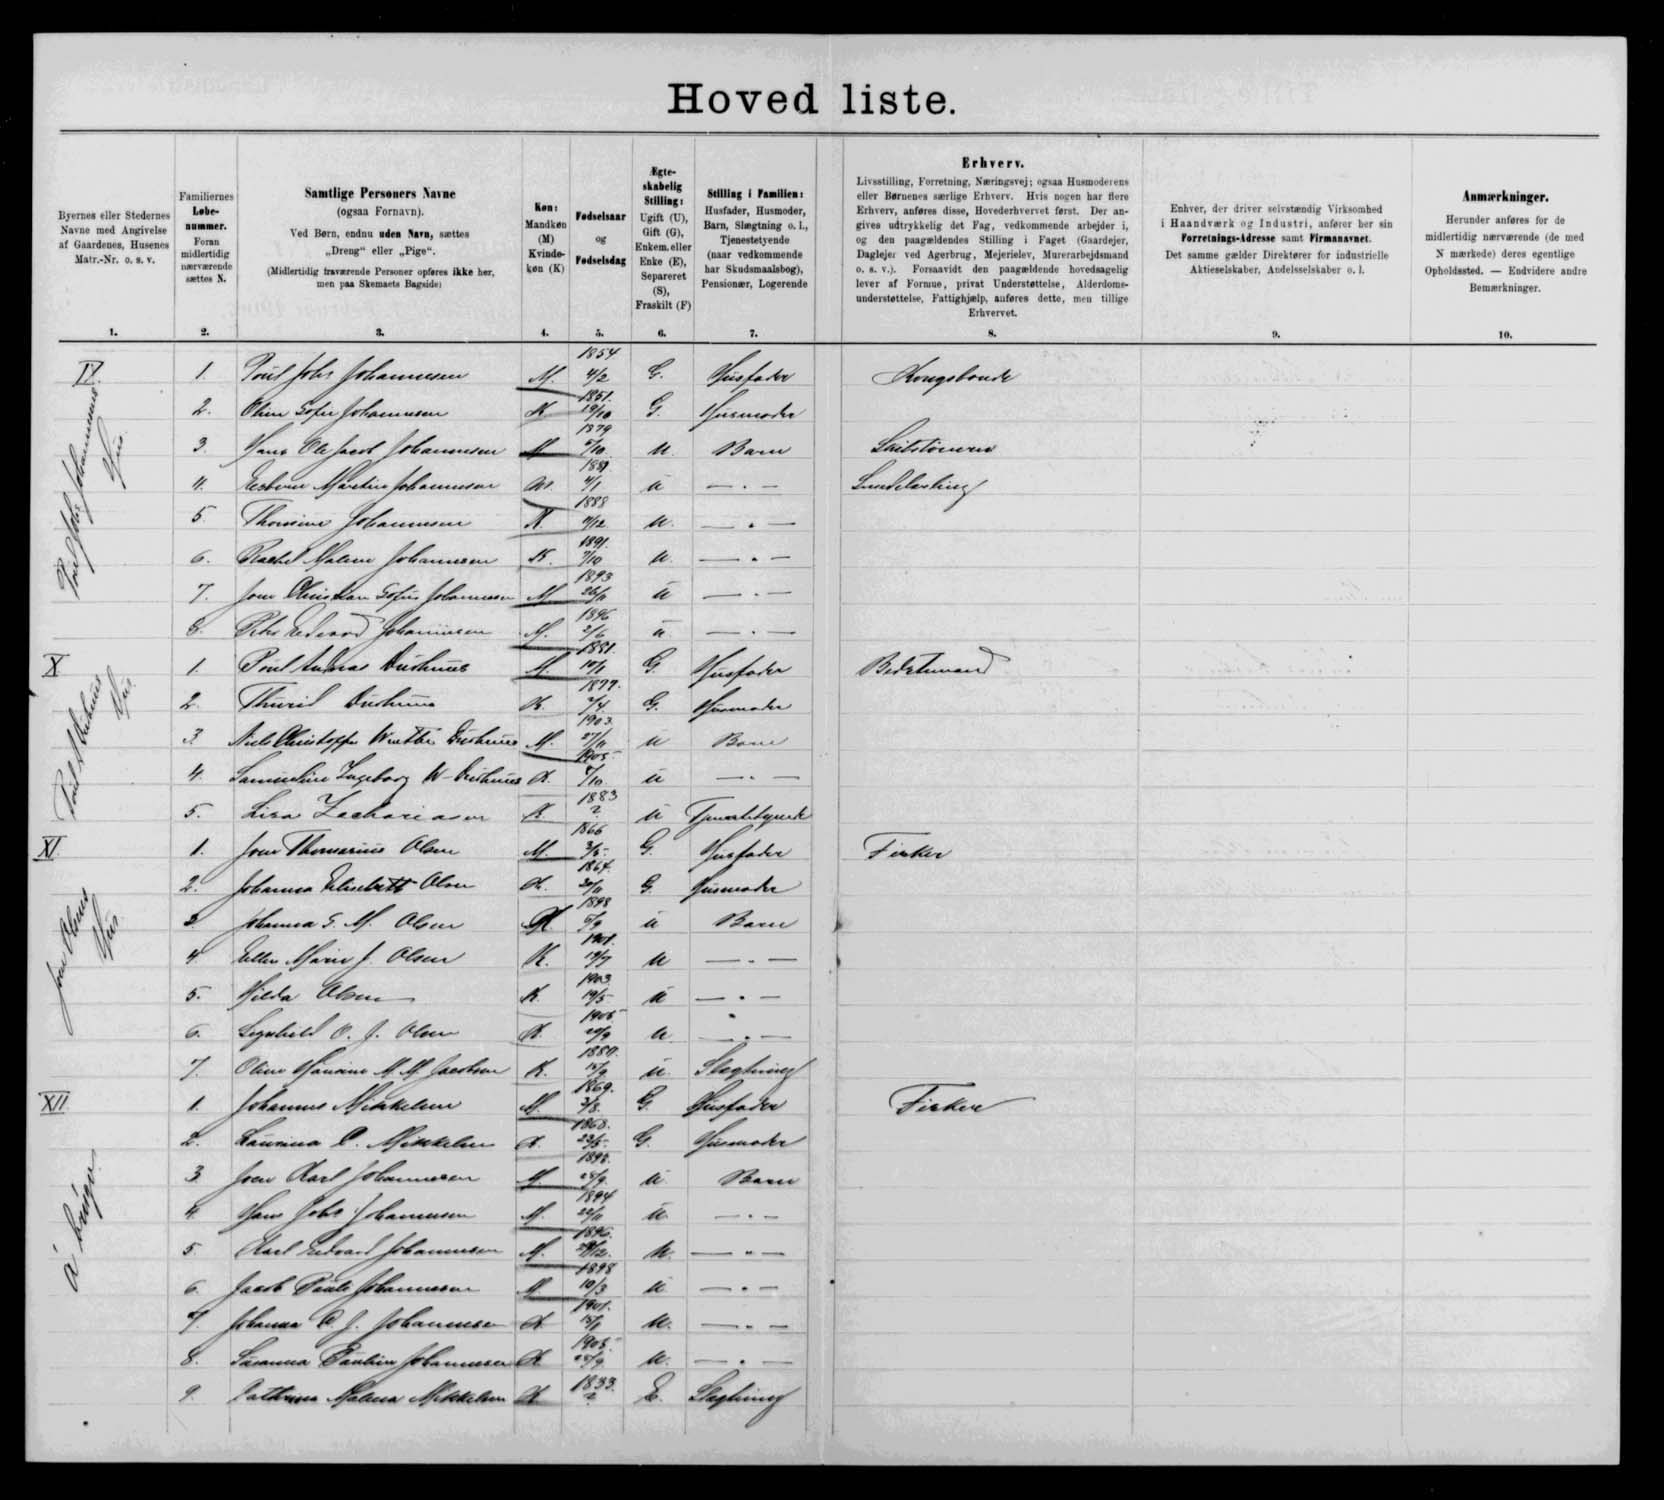 Hoved liste.
Byernes eller Stedernes
Navne med Angivelse
af Gaardenes, Husenes
Matr.-Nr. o. s. v.
1.
Familiernes
Løbe-
nummer.
Foran
midlertidig
nærværende
sættes N.
2.
Samtlige Personers Navne
(ogsaa Fornavn).
Ved Børn, endnu uden Navn, sættes
„Dreng“ eller „Pige“.
(Midlertidig fraværende Personer opføres ikke her,
men paa Skemaets Bagside)
3.
Køn:
Mandkøn
(M)
Kvinde-
køn (K)
4.
Fødselsaar
og
Fødselsdag
5.
Ægte-
skabelig
Stilling:
Ugift (U),
Gift (G),
Enkem. eller
Enke (E),
Separeret
(S),
Fraskilt (F)
6.
Stilling i Familien:
Husfader, Husmoder,
Barn, Slægtning o. l.,
Tjenestetyende
(naar vedkommende
har Skudsmaalsbog),
Pensionær, Logerende
7.
Erhverv.
Livsstilling, Forretning, Næringsvej; ogsaa Husmoderens
eller Børnenes særlige Erhverv. Hvis nogen har flere
Erhverv, anføres disse, Hovederhvervet først. Der an-
gives udtrykkelig det Fag, vedkommende arbejder i,
og den paagældendes Stilling i Faget (Gaardejer,
Daglejer ved Agerbrug, Mejerielev, Murerarbejdsmand
o. s. v.). Forsaavidt den paagældende hovedsagelig
lever af Formue, privat Understøttelse, Alderdoms-
understøttelse, Fattighjælp, anføres dette, men tillige
Erhvervet.
8.
Enhver, der driver selvstændig Virksomhed
i Haandværk og Industri, anfører her sin
Forretnings-Adresse samt Firmanavnet.
Det samme gælder Direktører for industrielle
Aktieselskaber, Andelsselskaber o. l.
9.
Anmærkninger.
Herunder anføres for de
midlertidig nærværende (de med
N mærkede) deres egentlige
Opholdssted. — Endvidere andre
Bemærkninger.
10.
Poul Johs Johannesens
Hus
1. Poul Johs Johannesen M. 1854 4/2 G. Husfader Kongsbonde
2. Oline Sofie Johannesen K 1851. 19/10 G. Husmoder
3. Hans Ole Jacob Johannesen M 1879 /10 U. Barn
4. Esbern Martin Johannesen M. 4/1 U — . —
5. Thomine Johannesen K 1888 /12 U. — . —
6. Rachel Malene Johannesen K. 1891. 7/10 U. — . —
7. Joen Christian Sofus Johannesen M 1893 26/11 U — . —
8. Peter Edvard Johannesen M. 1896 2/6 U — . —
X
Hus
1. Poul Andreas Dushuus M. 1881. 10/1 G. Husfader Bedstemand
2. Thurid K. 1877. 2/4 G. Husmoder
3. Niels Christoffer M. 1903. 27/11 U Barn
4. Samueline Ingeborg W- K. 1905 /10 U — . —
5. Lisa Zachariasen K 1883 ? U Tjenestetyende
XI.
Joen Olsens
Hus.
1. Joen Thomarius Olsen M. 1866 3/5 G. Husfader Fisker
2. Johanna Elisabeth Olsen K. 1864. /11 G. Husmoder
3. Johanna S. M. Olsen K. 1898 5/9 U Barn
4. Ellen Marie J. Olsen K. 1901. 19/7 U — . —
5. Hilda Olsen K. 1903. 19/5 U — . —
6. O. J. Olsen K. 1905 20/9 U — . —
7. Oline Hansine M. M. Jacobsen K. 1880. 15/9 U. Slægtning
XII.
á brúgv
1. Johannes Mikkelsen M. 1869. 3/8. G. Husfader Fisker
2. Laurina C. Mikkelsen K. 1868. 23/5 G. Husmoder
3. Joen Karl Johannesen M /9. U. Barn
4. Hans Johs Johannesen M. 1894 22/11 U. — . —
5. Karl Edvard Johannesen M. 1896. /12. U. — " —
6. Jacob Pauli Johannesen M 1898 10/3 U — . —
7. Johanna C. J. Johannesen K 1901. 15/1 U. — . —
8. Susanna Pauline Johannesen K 1905 25/9. U. — . —
9. Cathrina Malena Mikkelsen K 1833. ? E. Slægtning